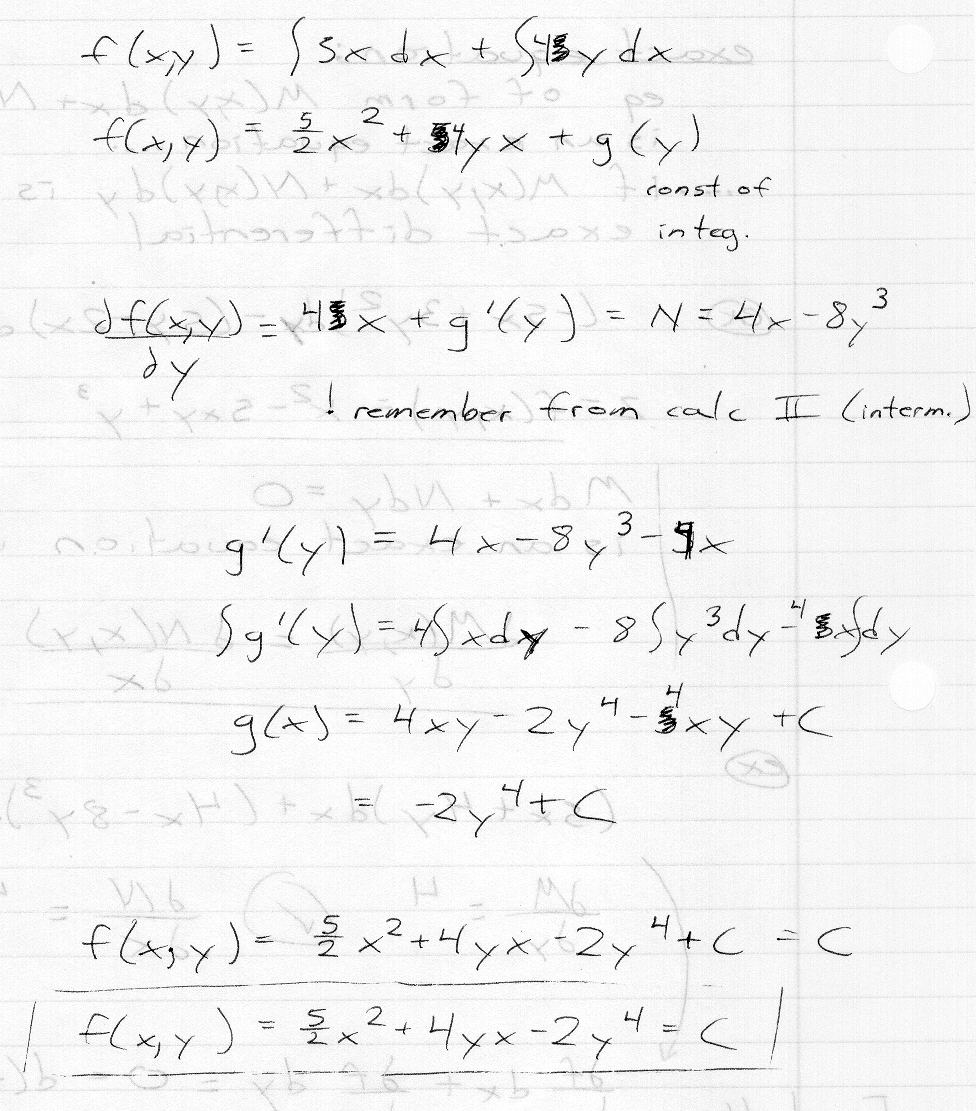 f(x,y) = ∫5x dx + ∫4y dx
f(x,y) = 5/2 x² + 4yx + g(y)
const of
integ.
∂f(x,y)/∂y = 4x + g'(y) = N = 4x - 8y³
! remember from calc II (interm.)
g'(y) = 4x - 8y³ - 4x
∫g'(y) = 4∫xdy - 8∫y³dy - 4x∫dy
g(x) = 4xy - 2y⁴ - 4xy + C
= -2y⁴ + C
f(x,y) = 5/2 x² + 4yx - 2y⁴ + C = C
f(x,y) = 5/2 x² + 4yx - 2y⁴ = C